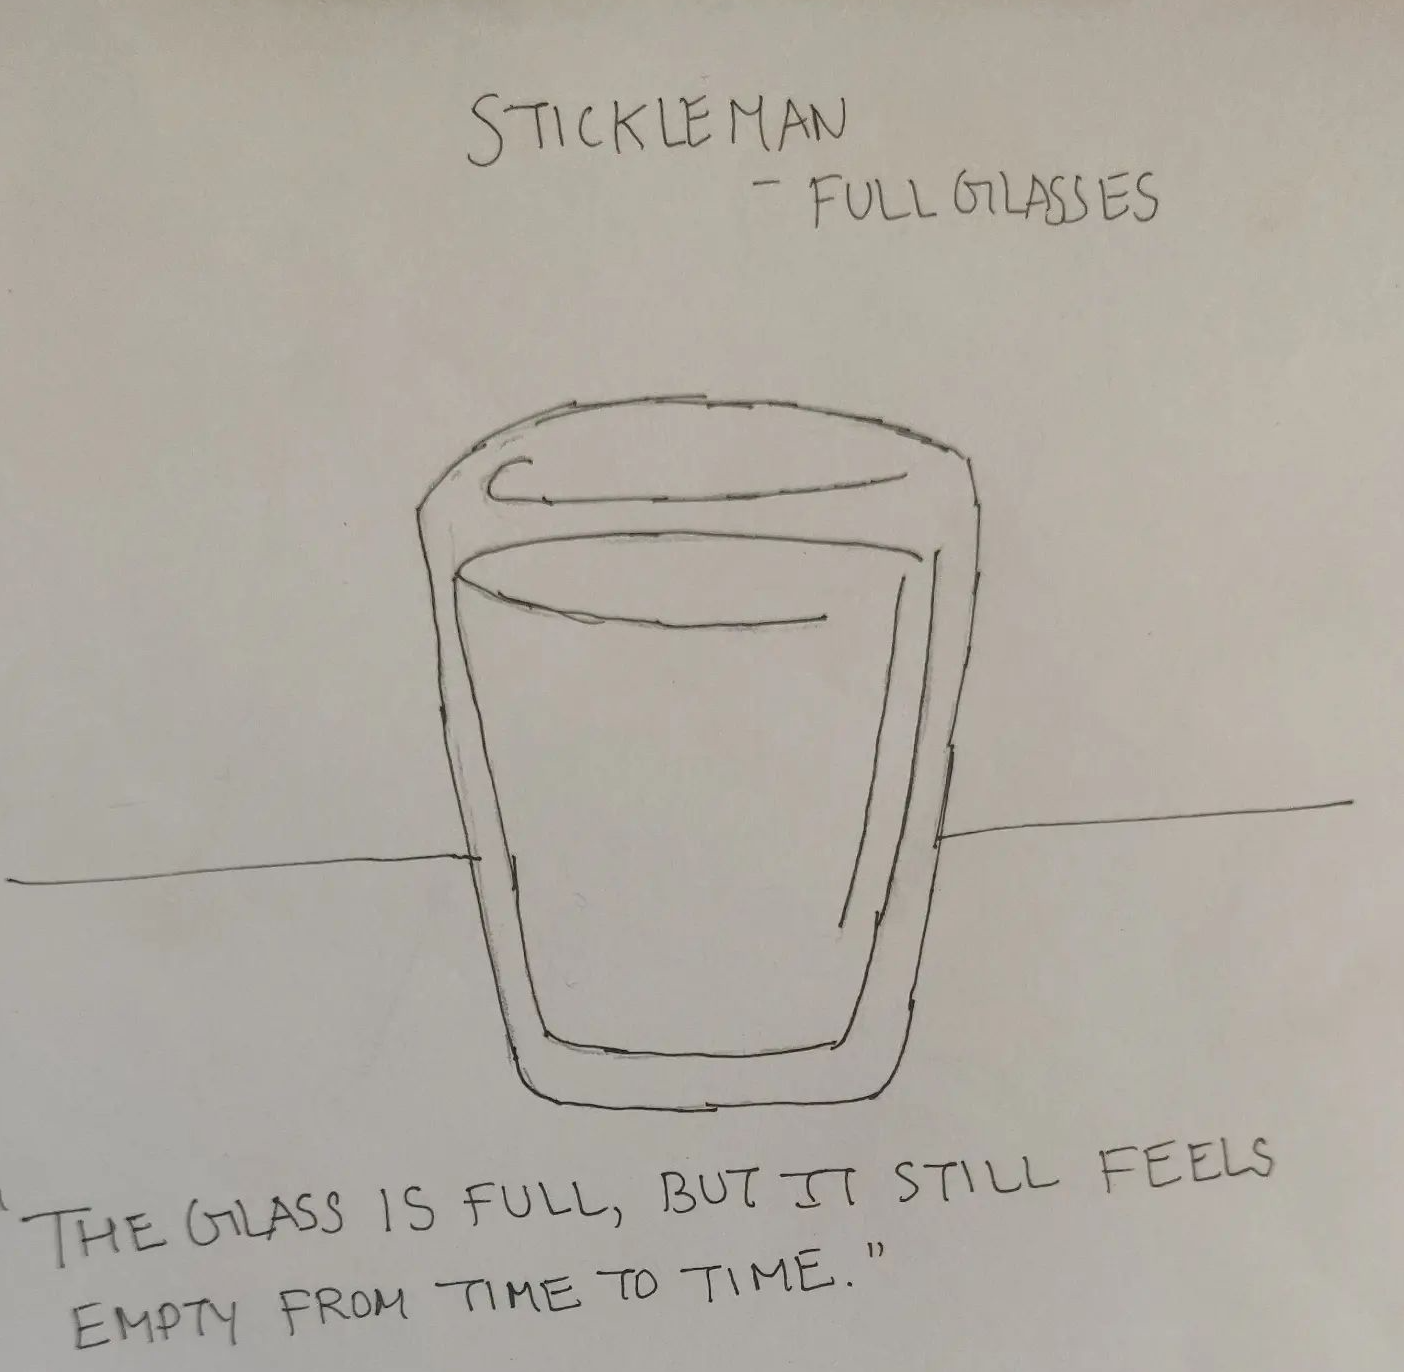 STICKLEMAN
- FULL GLASSES
"THE GLASS IS FULL, BUT IT STILL FEELS
EMPTY FROM TIME TO TIME."